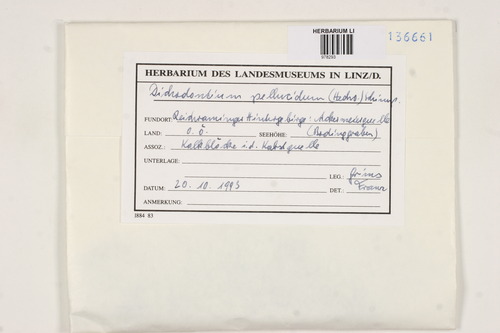 HERBARIUM LI
978293
136661
HERBARIUM DES LANDESMUSEUMS IN LINZ/D.
Dichodontium pellucidum (Hedw.) Schimp.
FUNDORT: Reichraminger Hintergebirge: Ackermäuerquelle
LAND: O.Ö. SEEHÖHE: (Bodinggraben)
ASSOZ.: Kalkblöcke i.d. Kalkquelle
UNTERLAGE:
LEG.: Grims
DATUM: 20.10.1993 DET.: Franz
ANMERKUNG:
I884 83